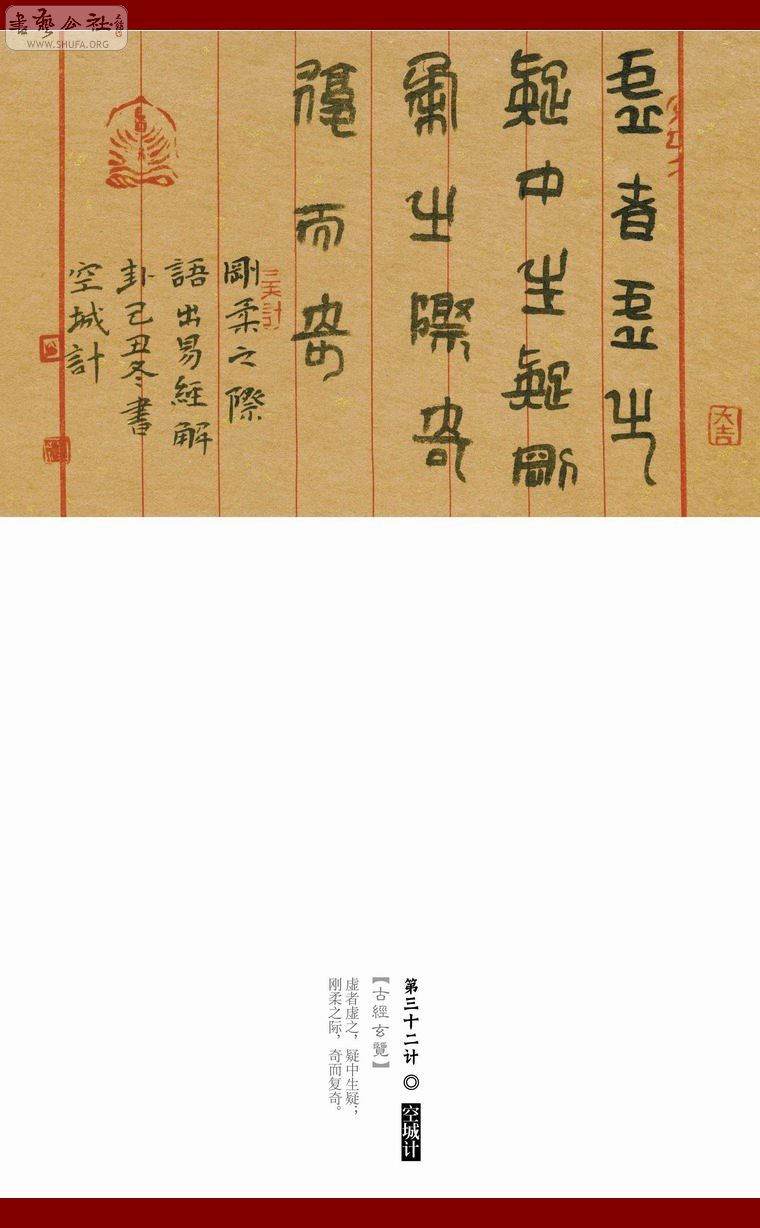 書藝公社
WWW.SHUFA.ORG
虛者虛之
疑中生疑剛
柔之際奇
復而奇
剛柔之際
語出易經解
卦己丑冬書
空城計
大吉
第三十二计 ◎ 空城计
【古經玄覽】
虚者虚之，疑中生疑；
刚柔之际，奇而复奇。